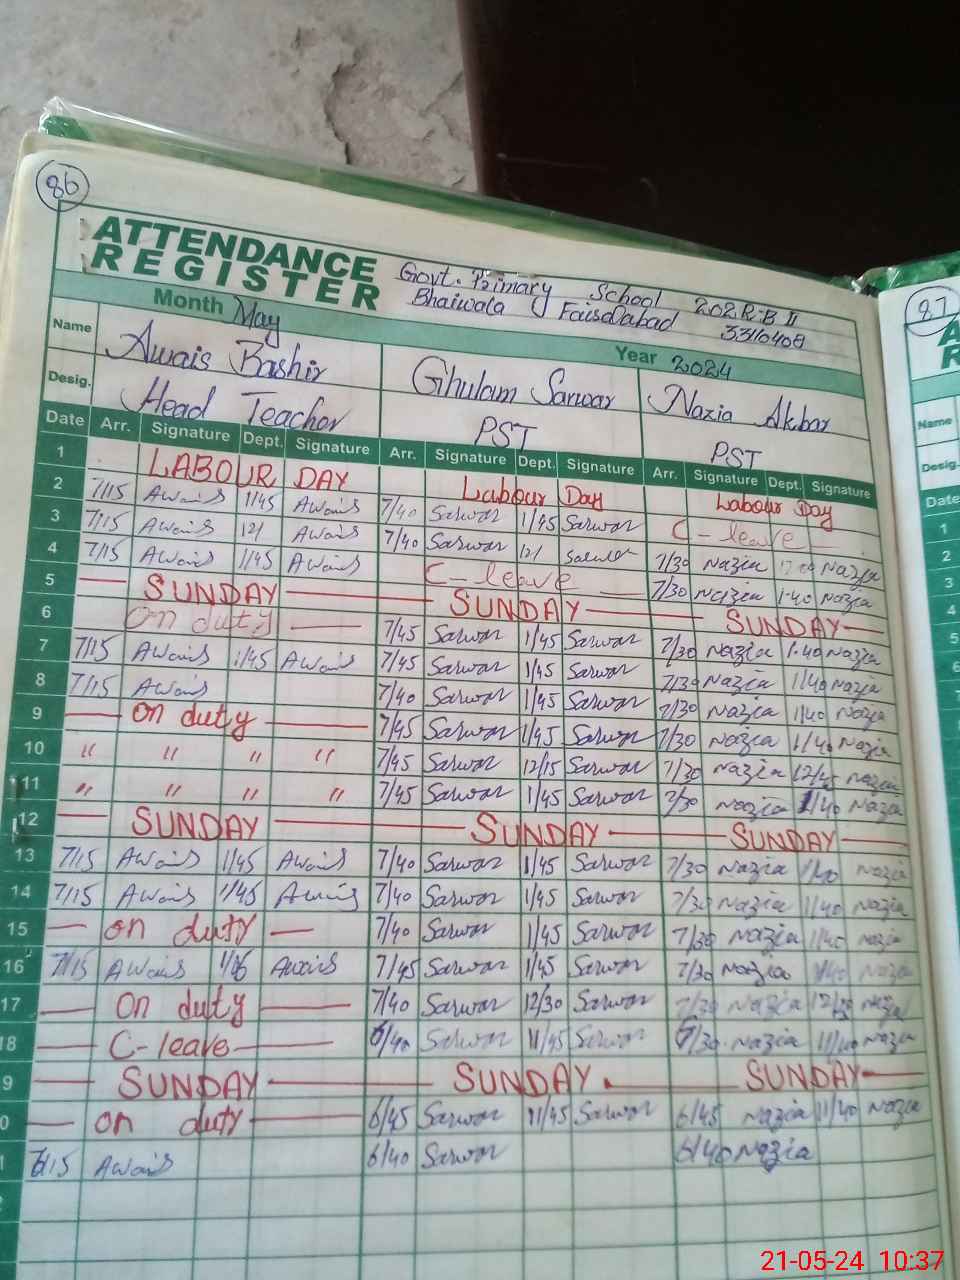 86
ATTENDANCE REGISTER Govt. Primary School 202 R-B II
Bhaiwala Faisalabad 33110408
Month May Year 2024
Name Awais Bashir Ghulam Sarwar Nazia Akbar
Desig. Head Teacher PST PST
Date Arr. Signature Dept. Signature Arr. Signature Dept. Signature Arr. Signature Dept. Signature
1 LABOUR DAY Labour Day Labour Day
2 7/15 Awais 1/45 Awais 7/40 Sarwar 1/45 Sarwar C-leave
3 7/15 Awais 12/ Awais 7/40 Sarwar 12/ Sarwar 7/30 Nazia Nazia
4 7/15 Awais 1/45 Awais C-leave 7/30 Nazia 1.40 Nazia
5 SUNDAY SUNDAY SUNDAY
6 On duty 7/45 Sarwar 1/45 Sarwar 7/30 Nazia 1.40 Nazia
7 7/15 Awais 1/45 Awais 7/45 Sarwar 1/45 Sarwar 7/30 Nazia 1/40 Nazia
8 7/15 Awais 7/40 Sarwar 1/45 Sarwar 7/30 Nazia 1/40 Nazia
9 on duty 7/45 Sarwar 1/45 Sarwar 7/30 Nazia 1/40 Nazia
10 " " " " 7/45 Sarwar 12/15 Sarwar 7/30 Nazia 12/45 Nazia
11 " " " " 7/45 Sarwar 1/45 Sarwar 7/30 Nazia 1/40 Nazia
12 SUNDAY SUNDAY SUNDAY
13 7/15 Awais 1/45 Awais 7/40 Sarwar 1/45 Sarwar 7/30 Nazia 1/40 Nazia
14 7/15 Awais 1/45 Awais 7/40 Sarwar 1/45 Sarwar 7/30 Nazia 1/40 Nazia
15 on duty 7/40 Sarwar 1/45 Sarwar 7/30 Nazia 1/40 Nazia
16 7/15 Awais Awais 7/45 Sarwar 1/45 Sarwar 7/30 Nazia 1/40 Nazia
17 On duty 7/40 Sarwar 12/30 Sarwar 7/30 Nazia Nazia
18 C-leave 6/40 Sarwar 11/45 Sarwar 6/30 Nazia 11/40 Nazia
9 SUNDAY SUNDAY SUNDAY
0 on duty 6/45 Sarwar 11/45 Sarwar 6/45 Nazia 11/40 Nazia
1 6/15 Awais 6/40 Sarwar 6/40 Nazia
87
Name
Desig.
Date
1
2
3
4
5
6
7
21-05-24 10:37